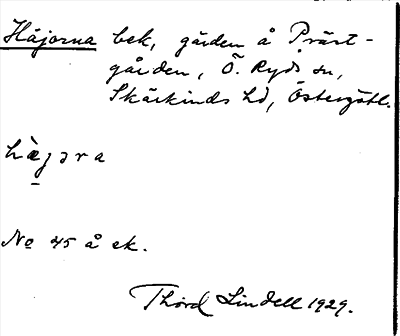 Håjorna bek, gården å Präst-
gården, Ö. Ryds sn,
Skärkinds hd, Östergötl.
hæ̀jɔra
No 45 å ek.
Thord Lindell 1929.